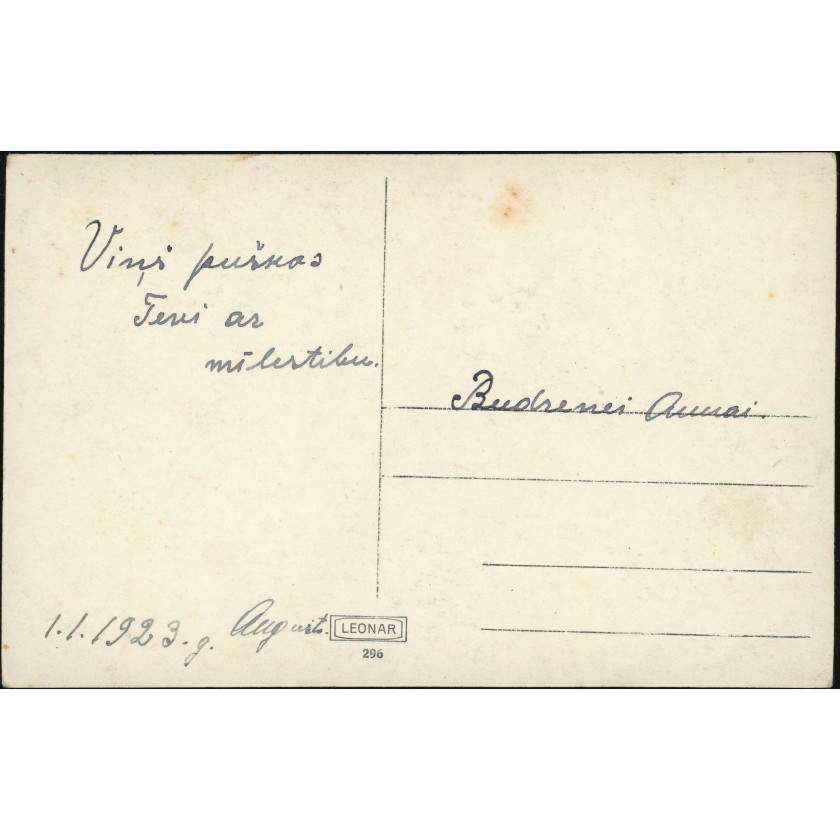 Viņš puškos
Tevi ar
mīlestibu.
Budrenei Annai.
1.1.1923.g. Augusts.
LEONAR
296